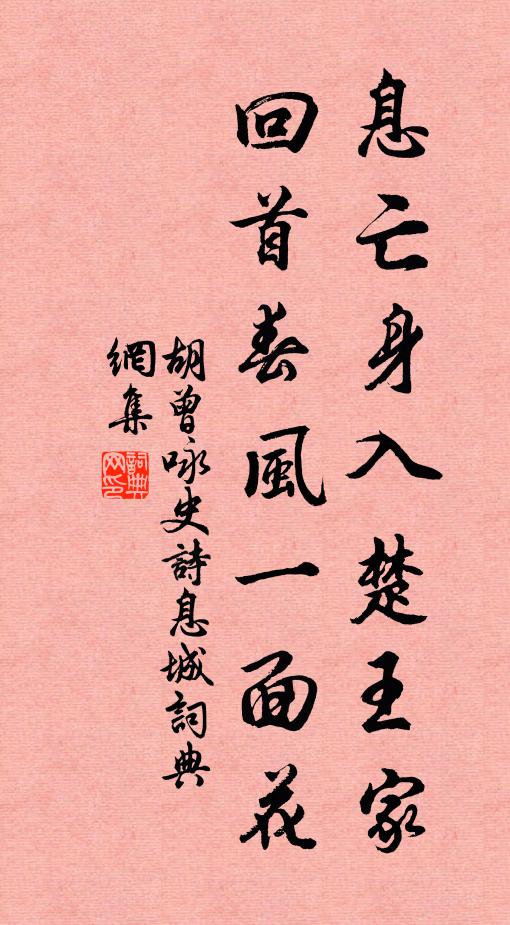 息亡身入楚王家
回首春風一面花
胡曾咏史詩息城詞典
網集
詞典
网印